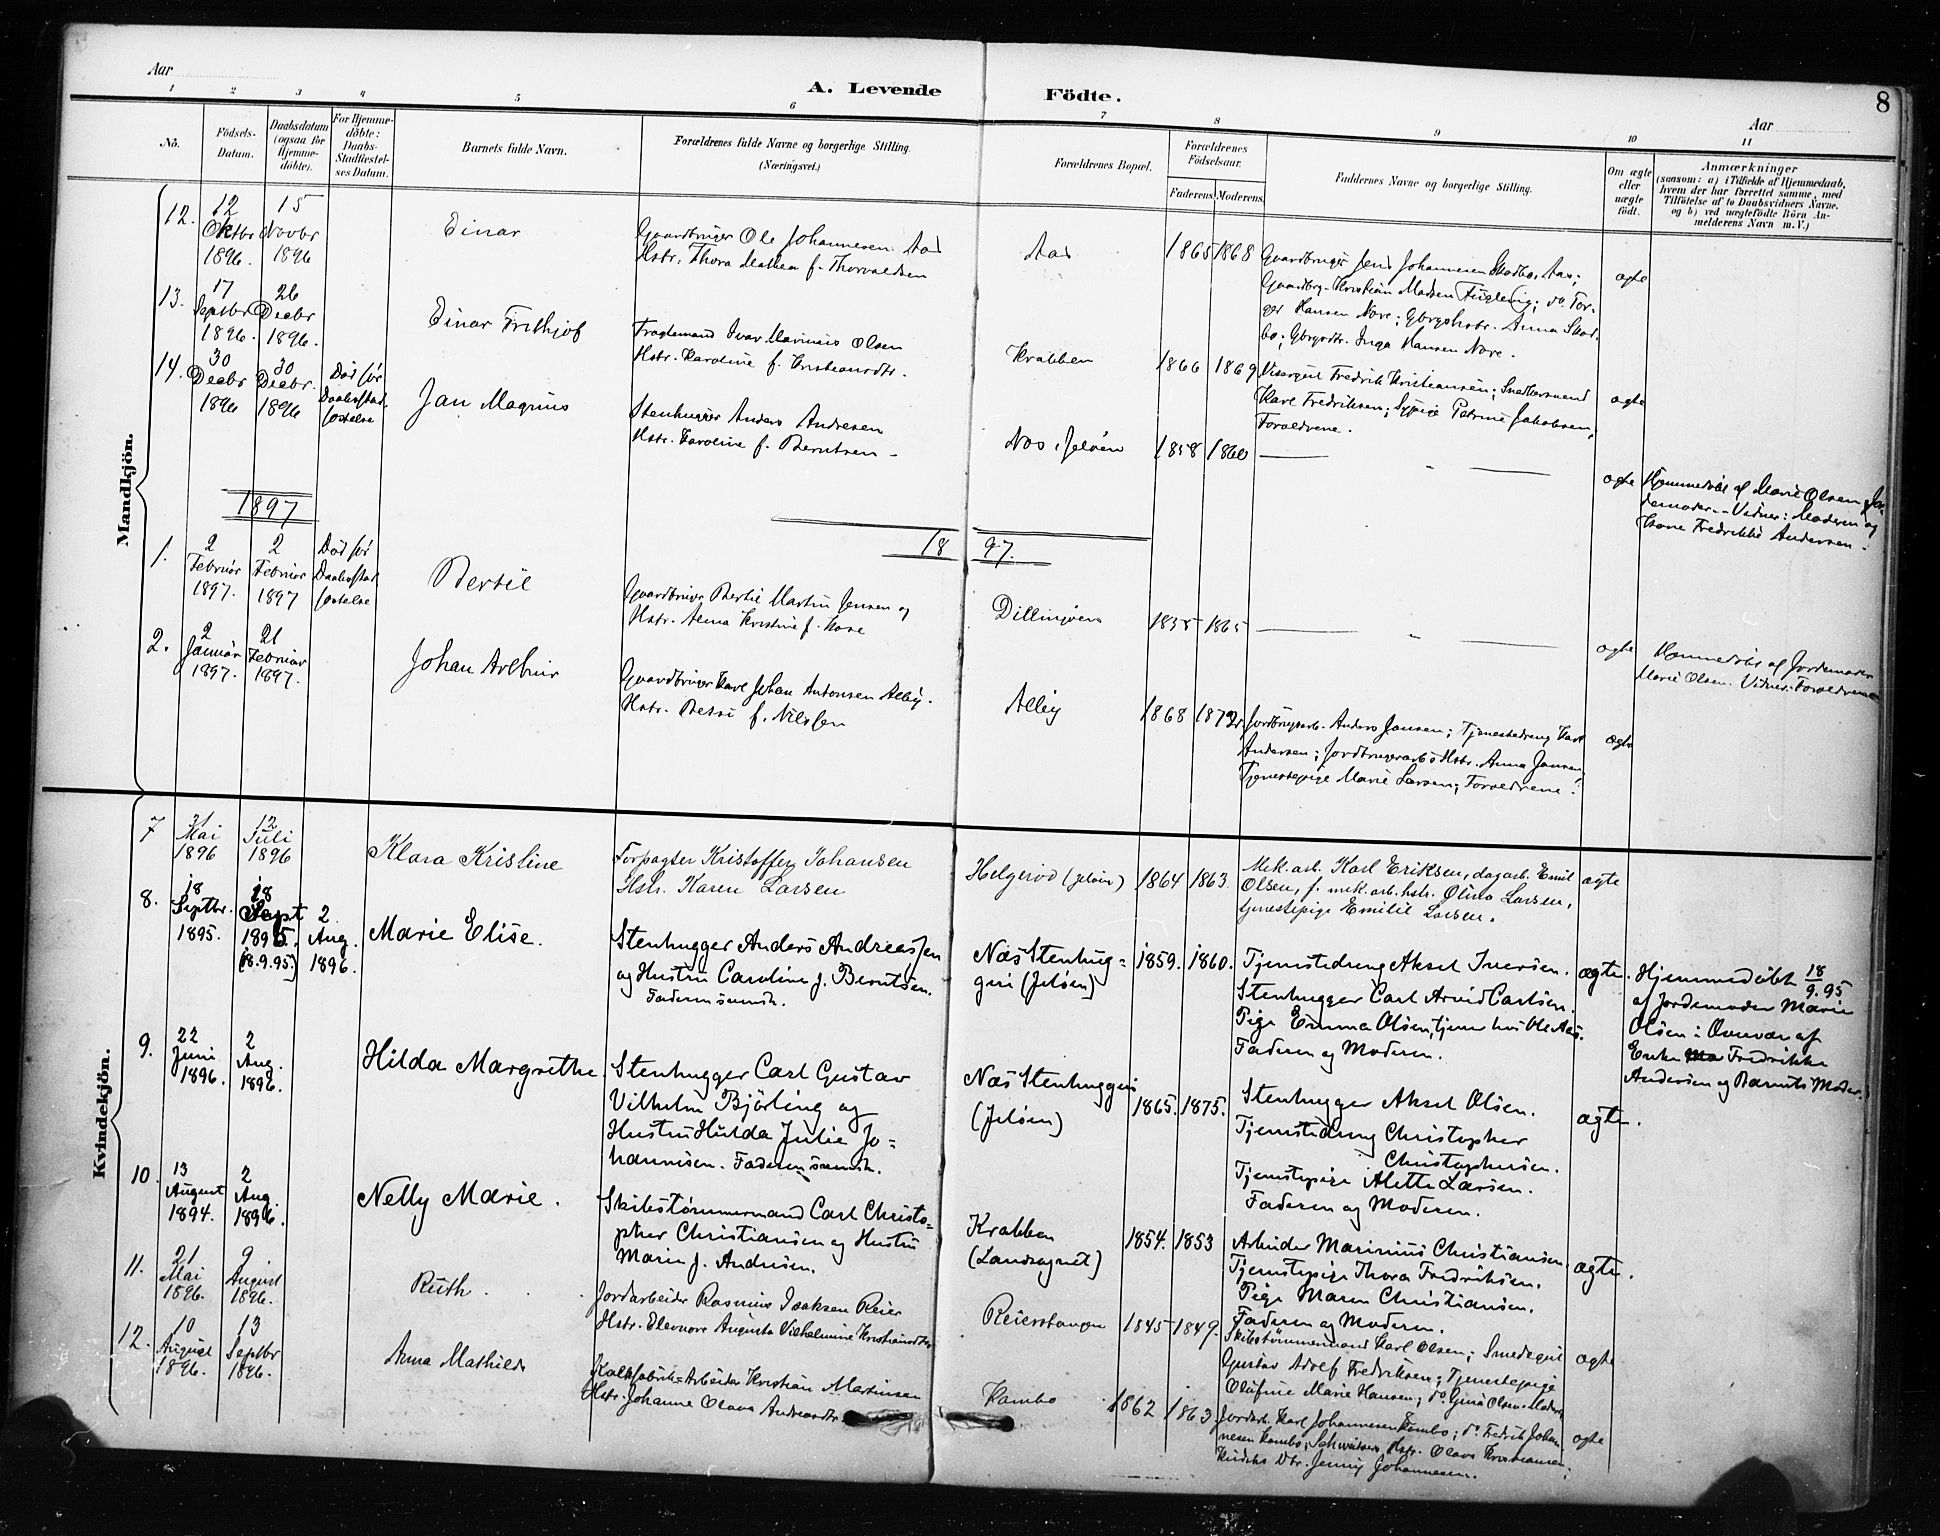 8
Aar
A. Levende Födte.
Aar
1 2 3 4 5 6 7 8 9 10 11
No.
Födsels-
Datum.
Daabsdatum
(ogsaa for
Hjemme-
döbte).
For Hjemme-
döbte:
Daabs-
Stadfæstel-
ses Datum.
Barnets fulde Navn.
Forældrenes fulde Navne og borgerlige Stilling.
(Næringsvei.)
Forældrenes Bopæl.
Forældrenes
Födselsaar.
Faderens. Moderens.
Faddernes Navne og borgerlige Stilling.
Om ægte
eller
uægte
födt.
Anmærkninger
(saasom: a) i Tilfælde af Hjemmedaab,
hvem der har forrettet samme, med
Tilföielse af to Daabsvidners Navne.
og b) ved uægtefödte Börn An-
melderens Navn m. V.)
Mandkjön.
12.
12
Oktbr
1896.
15
Novbr
1896
Einar
Gaardbruger Ole Johannesen Aas
Hstr. Thora Mathea f. Thorvaldsen
Aas
1865 1868
Gaardbruger Jens Johannesen Skadbo, Aas;
Gaardbrg. Kristian Madsen Fuglevig; do Tor-
ger Hansen Nore; Gbrgshstr. Anna Skad-
bo; Gbrgrdtr. Inga Hansen Nore.
ægte
13.
17
Septbr
1896.
26
Decbr
1896.
Einar Frithjof
Fragtemand Ivar Marinius Olsen
Hstr. Karoline f. Kristiansdtr.
Krabben
1866 1869
Visergut Fredrik Kristiansen; Snedkersvend
Karl Fredriksen; Sypige Petrine Jakobsen,
Forældrene.
ægte
14.
30
Decbr
1896
30
Decbr.
1896
Död för
Daabsstad-
fæstelse
Jan Magnus
Stenhugger Anders Andresen
Hstr. Karoline f. Berntsen
Næs, Jelöen
1858 1860
ægte
Hjemmedöbt af Marie Olsen, Jor-
demoder. Vidner: Moderen og
Kone Fredrikke Andersen.
1897
18 97.
1.
2
Februar
1897.
2
Februar
1897
Död för
Daabsstad
fæstelse
Bertil
Gaardbruger Bertil Martin Jensen og
Hstr. Anna Kristine f. Kose
Dillingöen
1835 1865
ægte
Hjemmedöbt af Jordemoder
Marie Olsen. Vidner: Forældrene
2.
2
Januar
1897.
21
Februar
1897.
Johan Arthur
Gaardbruger Karl Johan Antonsen Alby.
Hstr. Betsi f. Nilssen
Alby
1868 1872
Jordbrugsarb. Anders Jansen; Tjenestedreng Karl
Andersen; Jordbrugerarb.s Hstr. Anna Jansen;
Tjenestepige Marie Larsen; Forældrene.
ægte
Kvindekjön.
7
31
Mai
1896
12
Juli
1896
Klara Kristine
Forpagter Kristoffer Johansen
Hstr. Karen Larsen
Helgerod (Jelöen)
1864 1863
Mek. arb. Karl Eriksen, dagarb. Emil
Olsen, f. mek. arb. hstr. Olina Larsen,
tjenestepige Emilie Larsen.
ægte
8.
18
Septbr.
1895.
18
Sept
1895.
(18.9.95.)
2
Aug.
1896.
Marie Elise.
Stenhugger Anders Andreassen
og Hustru Caroline f. Berntsen.
Faderen svensk.
Næs Stenhug-
geri (Jelöen)
1859. 1860.
Tjenestedreng Aksel Iversen.
Stenhugger Carl Arvid Carlsen.
Pige Emma Olsen, tjener hos Ole Aas.
Faderen og Moderen.
ægte.
Hjemmedöbt 18/9.95
af Jordemoder Marie
Olsen i Overvær af
Enke Fredrikke
Andersen og Barnets Moder.
9.
22
Juni
1896.
2
Aug.
1896.
Hilda Margrethe
Stenhugger Carl Gustav
Vilhelm Björling og
Hustru Hulda Julie Jo-
hannesen. Faderen svensk.
Næs Stenhuggeri
(Jelöen)
1865. 1875.
Stenhugger Aksel Olsen.
Tjenestedreng Christopher
Christophersen.
Tjenestepige Alette Larsen.
Faderen og Moderen.
ægte.
10.
13
August
1894.
2
Aug.
1896.
Nelly Marie.
Skibstømmermand Carl Christo-
pher Christiansen og Hustru
Maria f. Andersen.
Krabben
(Landsognet)
1854. 1853
Arbeider Marinius Christiansen.
Tjenestepige Thora Fredriksen.
Pige Maren Christiansen.
Faderen og Moderen.
ægte.
11.
21
Mai
1896.
9
August
1896.
Ruth
Jordarbeider Rasmus Isaksen Reier
Hstr. Eleonore Augusta Vilhelmine Kristiansdtr
Reierstangen
1845 1849.
Skibstømmermand Karl Olsen; Smedegut
Gustav Adolf Fredriksen; Tjenestepige
Olufine Marie Hansen; do Gina Olsen; Moderen
ægte
12.
10
August
1896.
13
Septbr
1896.
Anna Mathilde
Kalkfabrik-Arbeider Kristian Martinsen
Hstr. Johanne Olava Andreasdtr
Kambo
1862 1863
Jordarb. Karl Johannesen Kambo; do Fredrik Johan-
nesen Kambo; Hstr. Olava Kristiansen;
Dtr. Jenny Johannesen.
ægte